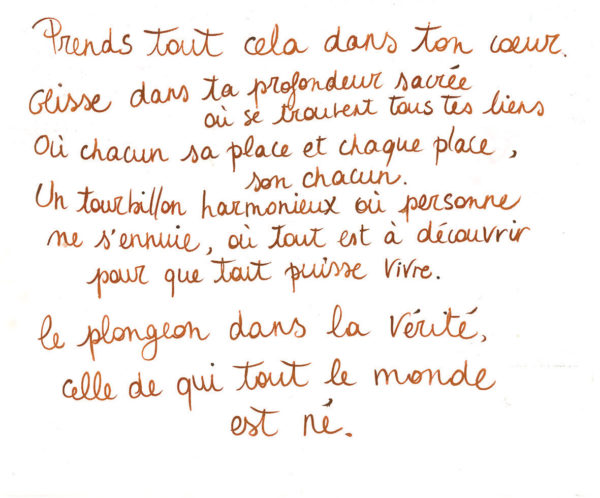 Prends tout cela dans ton cœur.
Glisse dans ta profondeur sacrée
où se trouvent tous tes liens
Où chacun sa place et chaque place,
son chacun.
Un tourbillon harmonieux où personne
ne s'ennuie, où tout est à découvrir
pour que tout puisse vivre.
le plongeon dans la vérité,
celle de qui tout le monde
est né.